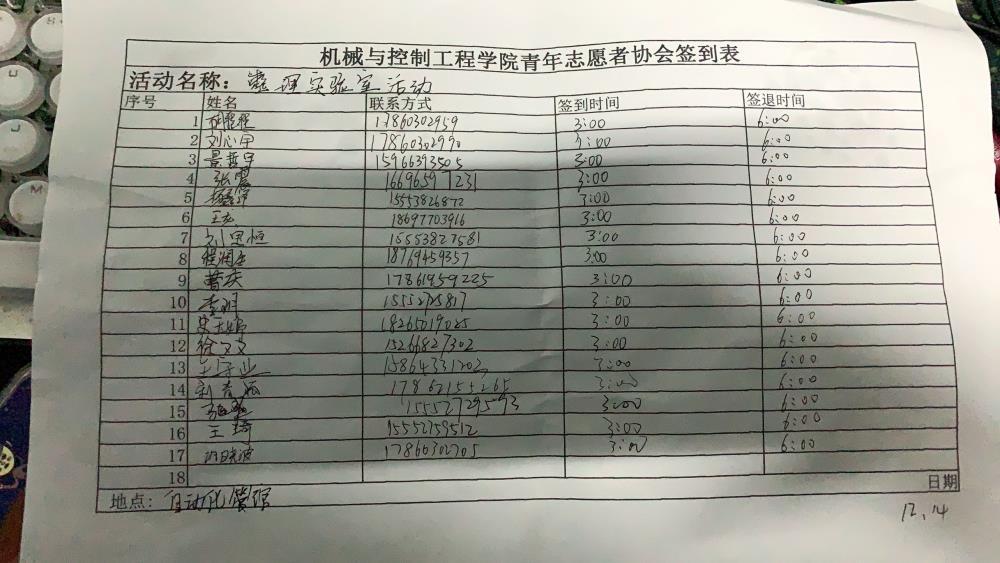 机械与控制工程学院青年志愿者协会签到表
活动名称：整理实验室活动
序号 姓名 联系方式 签到时间 签退时间
1 17860302959 3:00 6:00
2 刘心宇 17860302990 3:00 6:00
3 景哲宇 15966393505 3:00 6:00
4 张震 16696597231 3:00 6:00
5 15553826872 3:00 6:00
6 18697703916 3:00 6:00
7 刘思恒 15553827581 3:00 6:00
8 程润生 18769459357 3:00 6:00
9 曹庆 17861959225 3:00 6:00
10 李明 3:00 6:00
11 18265019025 3:00 6:00
12 徐文文 15266827302 3:00 6:00
13 王守业 15864331202 3:00 6:00
14 3:00 6:00
15 15552729593 3:00 6:00
16 王琦 15552759512 3:00 6:00
17 17860302705 3:00 6:00
18
日期
地点：自动化管理
12.14